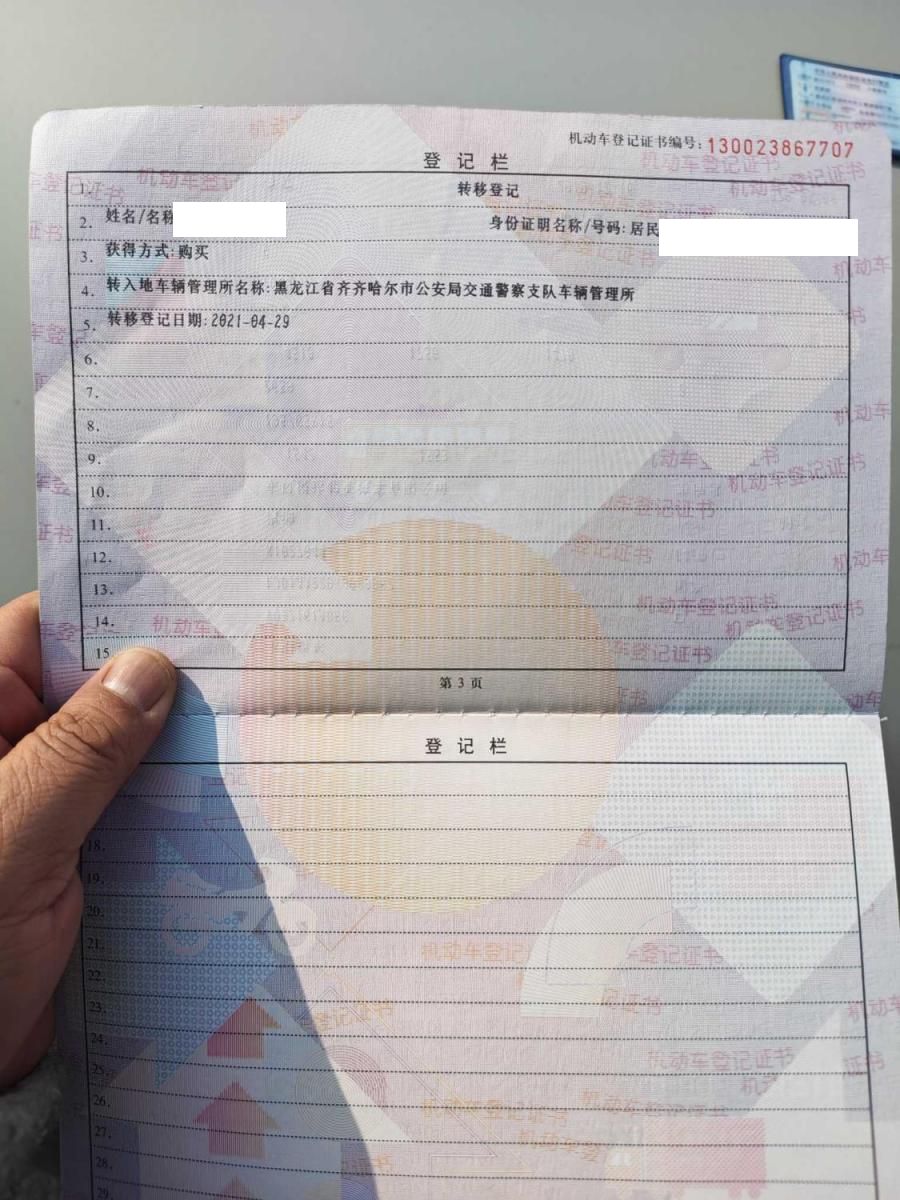 机动车登记证书编号:130023867707
登记栏
1. 转移登记
2. 姓名/名称 身份证明名称/号码:居民
3. 获得方式:购买
4. 转入地车辆管理所名称:黑龙江省齐齐哈尔市公安局交通警察支队车辆管理所
5. 转移登记日期:2021-04-29
6.
7.
8.
9.
10.
11.
12.
13.
14.
15
第 3 页
登记栏
18.
19.
20.
21.
22.
23.
24.
25.
26.
27.
28.
29.